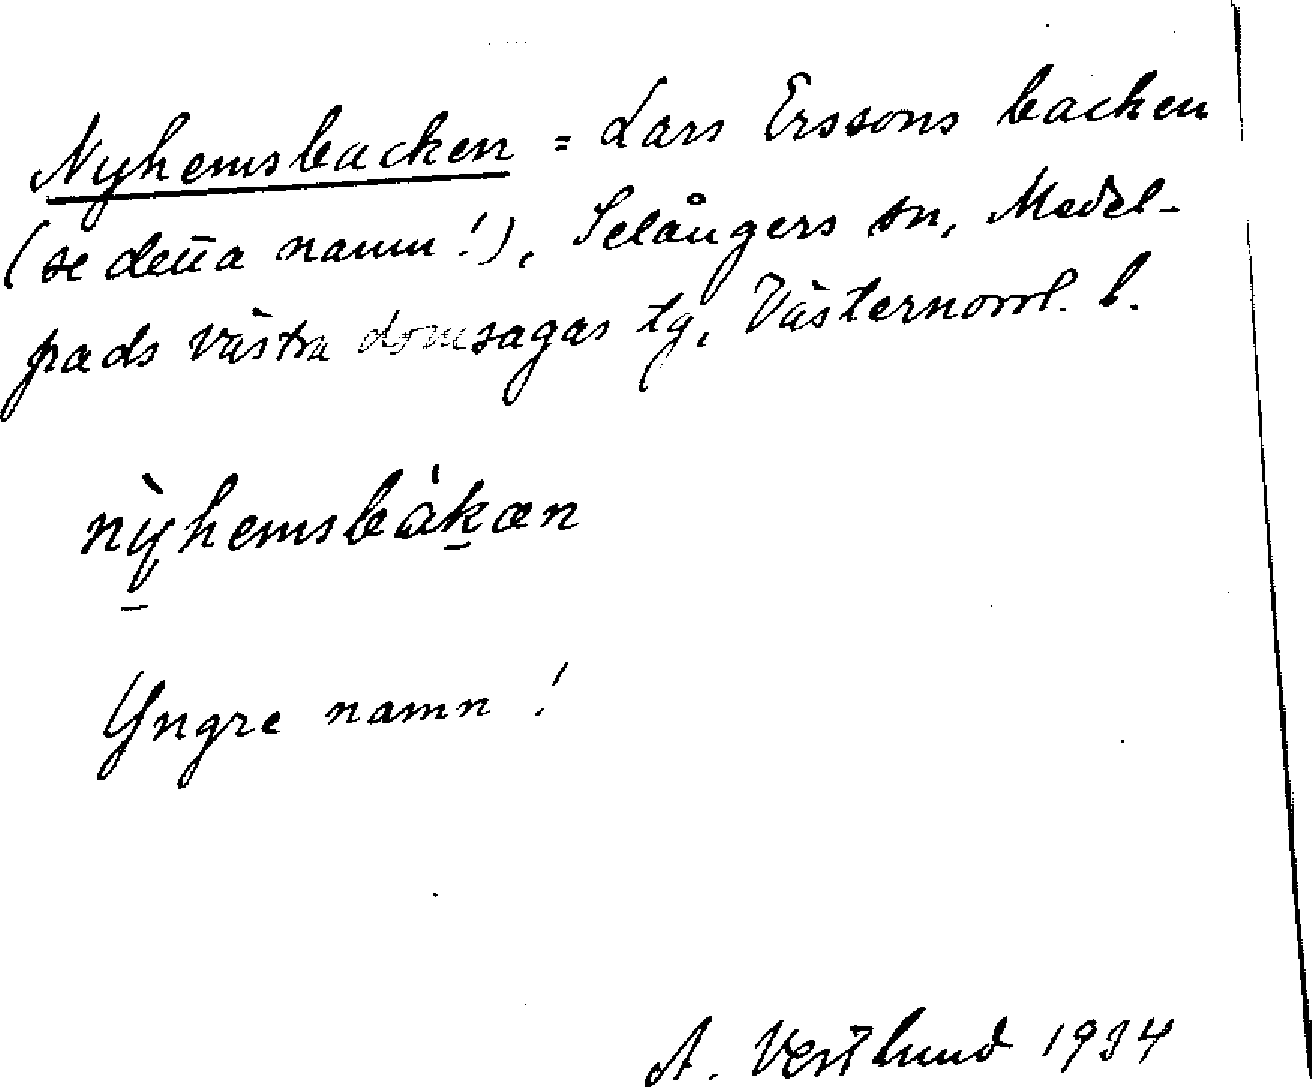 Nyhemsbacken = Lars Erssons backen
(se detta namn!), Selångers sn, Medel-
pads västra domsagas tg, Västernorrl. l.
nỳhemsbák̠æn
Yngre namn!
A. Vestlund 1934